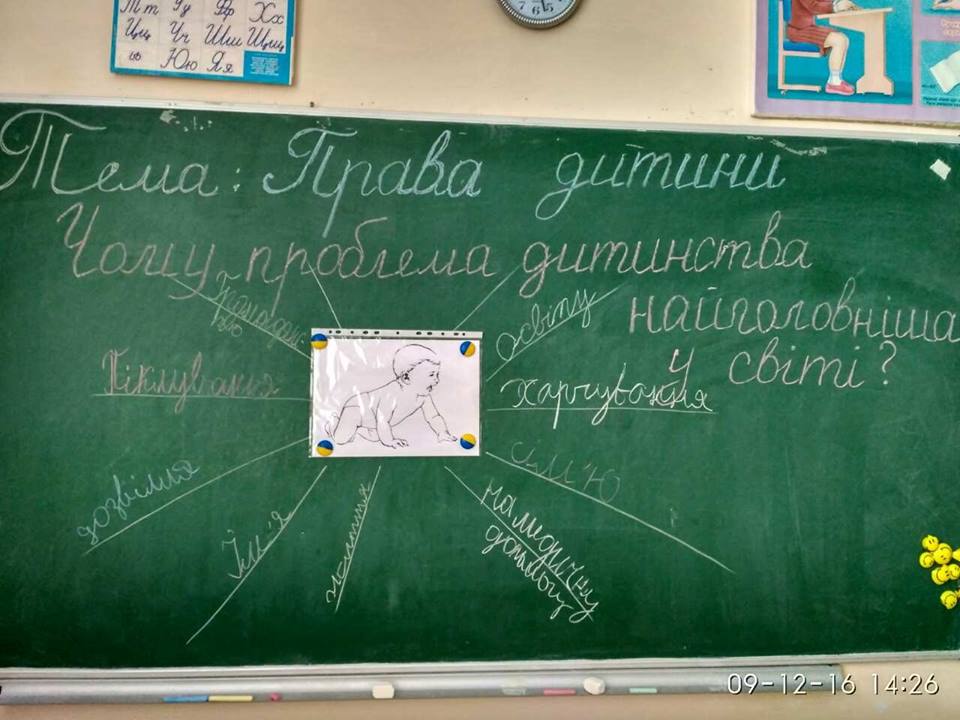 Тт Уу Фф Хх
Цц Чч Шш Щщ
ь Юю Яя
Тема: Права дитини
Чому проблема дитинства
найголовніша
у світі?
освіту
Піклування
харчування
сім'ю
дозвілля
Ім'я
життя
на медичну
допомогу
09-12-16 14:26